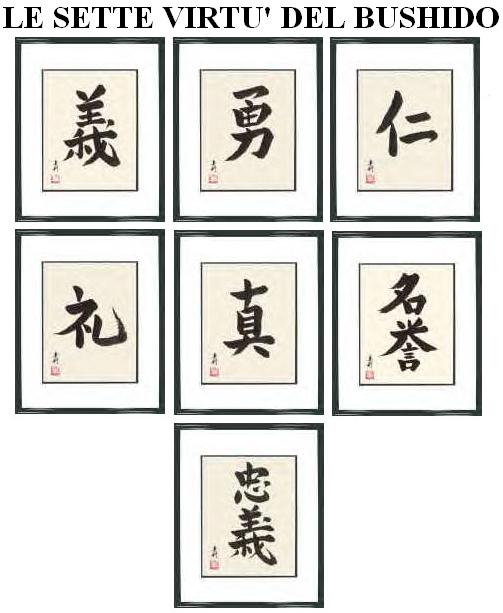 LE SETTE VIRTU' DEL BUSHIDO
義
勇
仁
礼
真
名誉
忠義